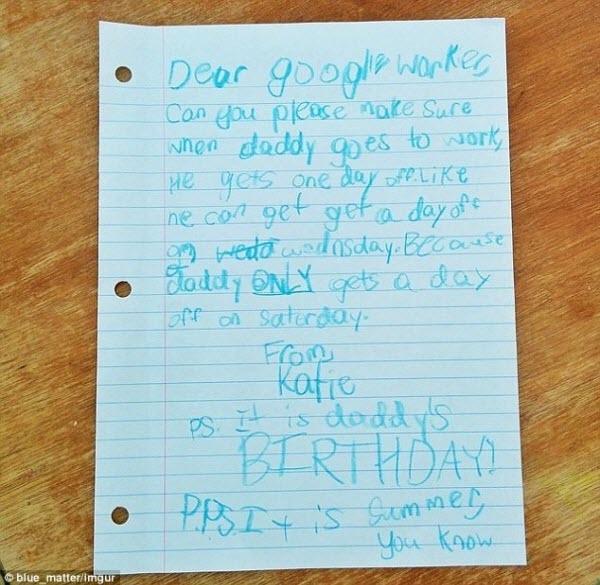 Dear google worker,
Can you please make sure
when daddy goes to work,
He gets one day off. Like
he can get get a day off
on wedd wednsday. Because
daddy ONLY gets a day
off on saturday.
From,
Katie
PS. It is daddy's
BIRTHDAY!
P.P.S. It is summer,
you know
© blue_matter/imgur